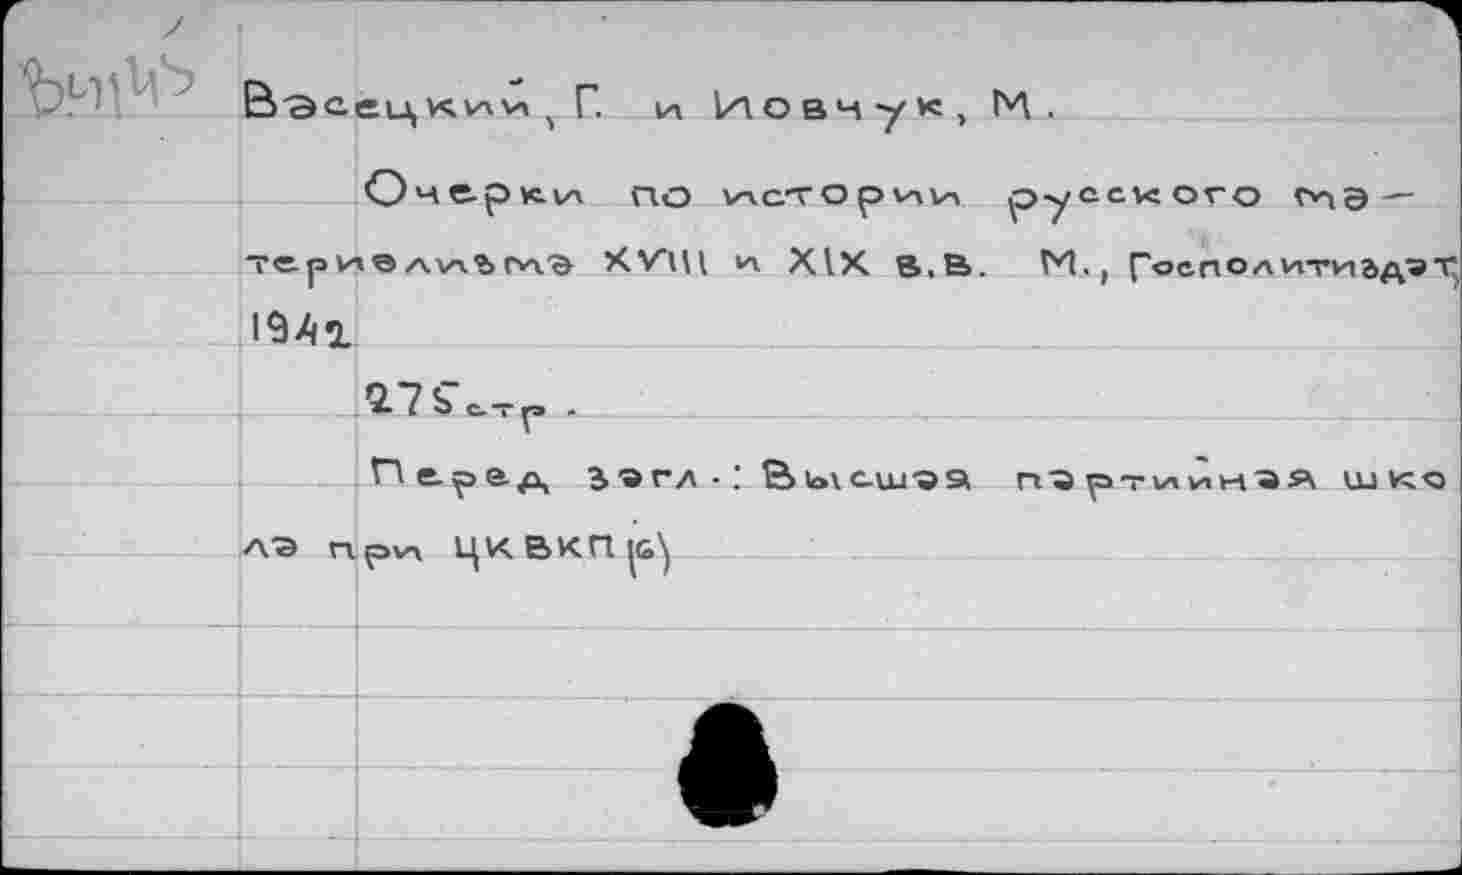 Васецкий, Г. и Иовчук, М.
Очерки по истории русского ма —
териализма XVIII и XIX в.в. М., Госполитиздат,
1942
275 стр.
Перед загл.: Высшая партийная шко
ла при ЦК ВКП(б)